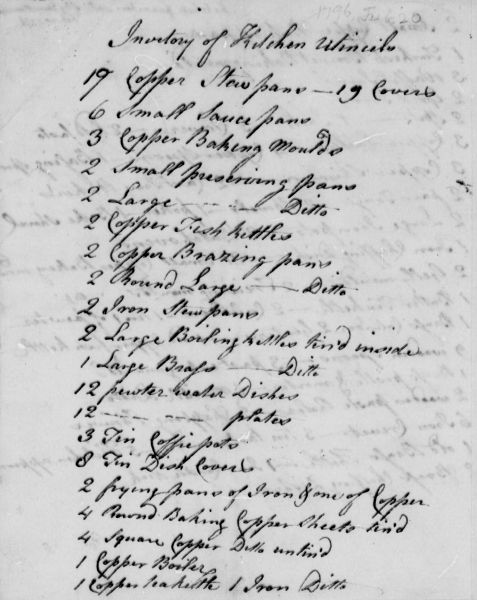 1796 Feb 20
Invetory of Kitchen Utincils
19 Copper Stew pans — 19 Covers
6 Small Sauce pans
3 Copper Baking Moulds
2 Small preserving pans
2 Large — — — Ditto
2 Copper Fish kettles
2 Copper Brazing pans
2 Round Large — Ditto
2 Iron Stew pans
2 Large Boiling kettles tin'd inside
1 Large Brass — Ditto
12 pewter water Dishes
12 — — — plates
3 Tin Coffie pots
8 Tin Dish Covers
2 frying pans of Iron & one of Copper
4 Round Baking Copper Sheets tin'd
4 Square Copper Ditto untin'd
1 Copper Boiler
1 Copper tea kettle 1 Iron Ditto